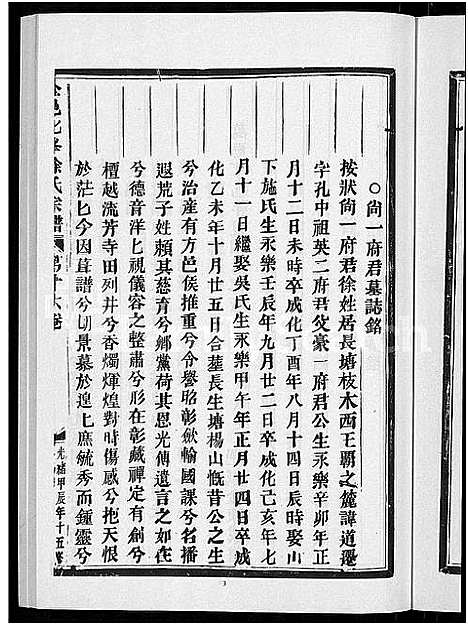 ○尙一府君墓誌銘
按狀尙一府君徐姓居長塘枝木西王覇之麓諱道遷
字孔中祖英二府君父豪一府君公生永樂辛卯年正
月十二日未時卒成化丁酉年八月十四日辰時娶山
下施氏生永樂壬辰年九月廿二日卒成化己亥年七
月十一日繼娶吳氏生永樂甲午年正月廿四日卒成
化乙未年十月廿五日合塟長生塘楊山慨昔公之生
兮治産有方邑侯推重兮令譽昭彰斂輸國課兮名播
遐荒子姓賴其慈育兮鄉黨荷其恩光傳遺言之如在
兮德音洋匕視儀容之整肅兮形在彰藏禪定有創兮
檀越流芳寺田列井兮香燭煇煌對時傷感兮抱天恨
於茫匕今因葺譜兮切景慕於遑匕庶毓秀而鍾靈兮
北 徐氏宗譜 第十六卷 光緖甲辰年十五修